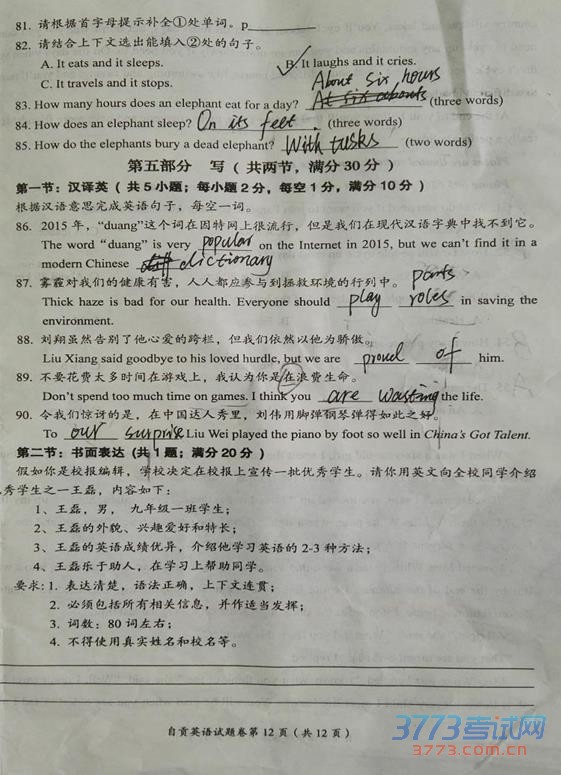 81. 请根据首字母提示补全①处单词。p
82. 请结合上下文选出能填入②处的句子。
A. It eats and it sleeps. B. It laughs and it cries.
C. It travels and it stops. About six hours
83. How many hours does an elephant eat for a day? (three words)
84. How does an elephant sleep? On its feet. (three words)
85. How do the elephants bury a dead elephant? With tusks (two words)
第五部分 写 ( 共两节，满分 30 分 )
第一节：汉译英 ( 共 5 小题；每小题 2 分，每空 1 分，满分 10 分 )
根据汉语意思完成英语句子，每空一词。
86. 2015 年，“duang”这个词在因特网上很流行，但是我们在现代汉语字典中找不到它。
The word “duang” is very popular on the Internet in 2015, but we can’t find it in a
modern Chinese dictionary
87. 雾霾对我们的健康有害，人人都应参与到拯救环境的行列中。 parts
Thick haze is bad for our health. Everyone should play roles in saving the
environment.
88. 刘翔虽然告别了他心爱的跨栏，但我们依然以他为骄傲。
Liu Xiang said goodbye to his loved hurdle, but we are proud of him.
89. 不要花费太多时间在游戏上，我认为你是在浪费生命。
Don’t spend too much time on games. I think you are wasting the life.
90. 令我们惊讶的是，在中国达人秀里，刘伟用脚弹钢琴弹得如此之好。
To our surprise Liu Wei played the piano by foot so well in China’s Got Talent.
第二节：书面表达 (共 1 题；满分 20 分 )
假如你是校报编辑，学校决定在校报上宣传一批优秀学生。请你用英文向全校同学介绍
秀学生之一王磊，内容如下：
1、王磊，男， 九年级一班学生；
2、王磊的外貌、兴趣爱好和特长；
3、王磊的英语成绩优异，介绍他学习英语的 2-3 种方法；
4、王磊乐于助人，在学习上帮助同学。
要求: 1. 表达清楚，语法正确，上下文连贯；
2. 必须包括所有相关信息，并作适当发挥；
3. 词数：80 词左右；
4. 不得使用真实姓名和校名等。
自贡英语试题卷第 12 页 ( 共 12 页 )
3773考试网
3773.com.cn